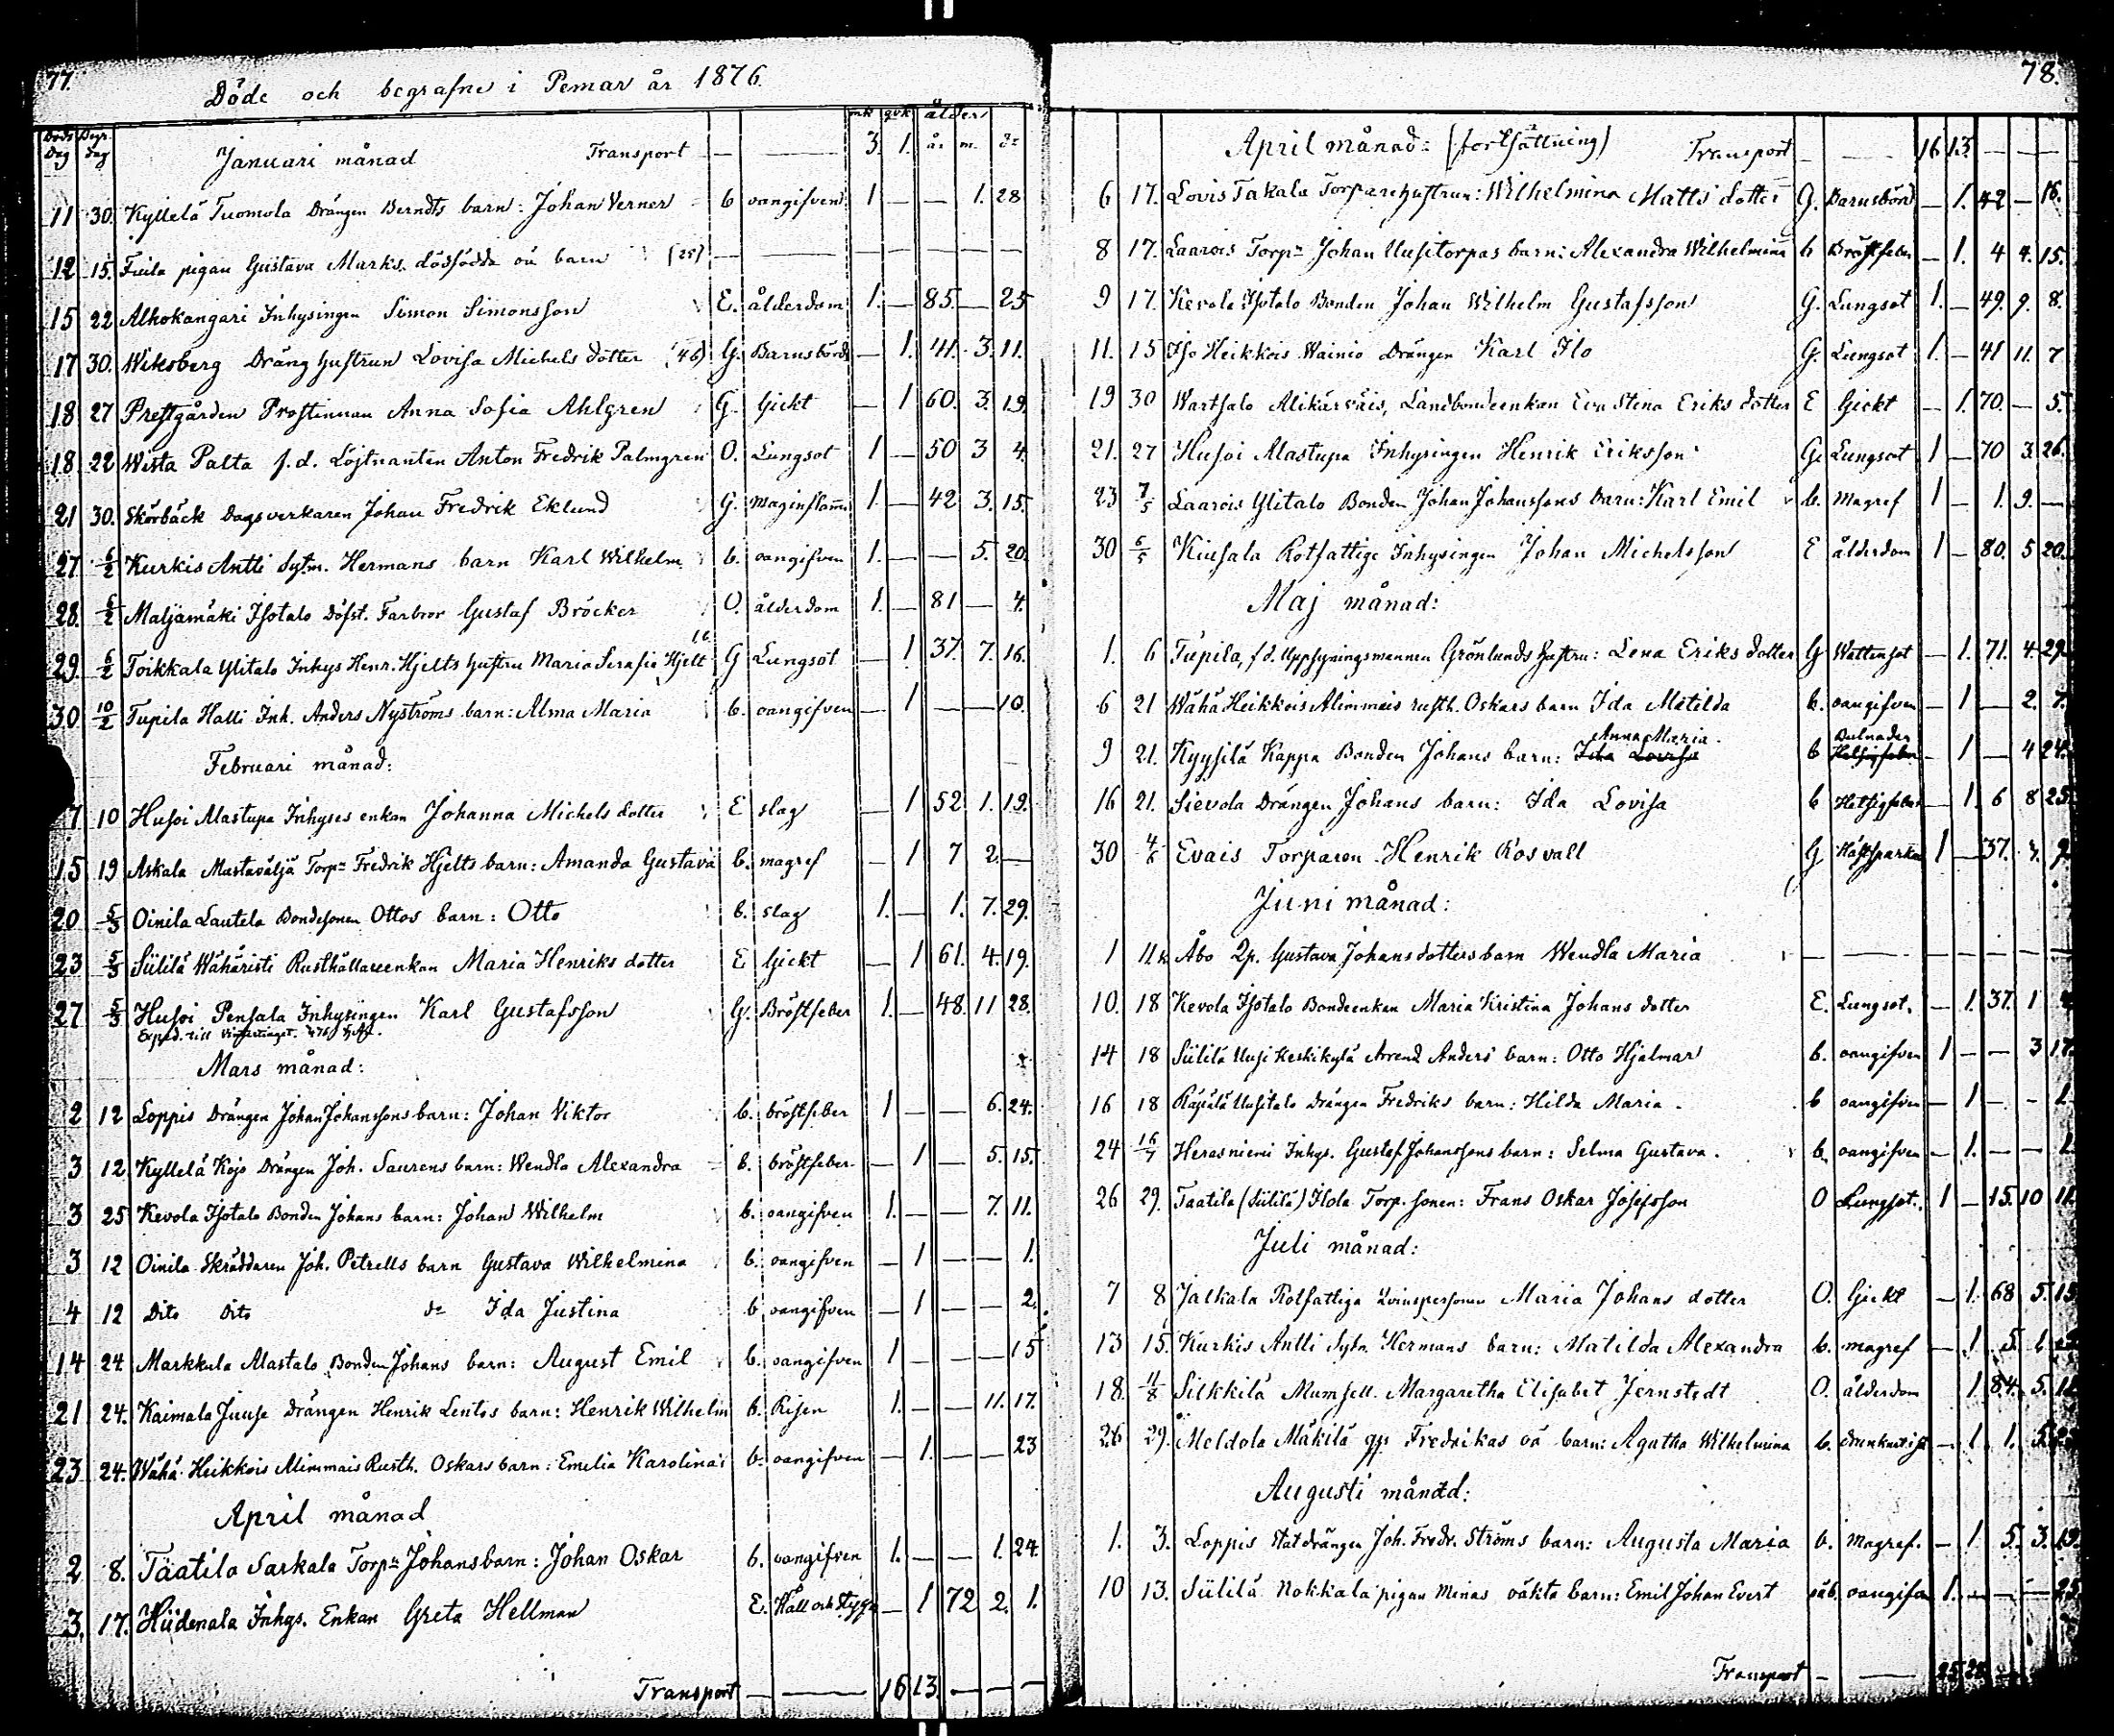 77.
Döde och begrafne i Pemar år 1876.
Döds dag Begr. dag mk qvk ålder
Januari månad Transport — — 3. 1. år m. dr
11 30. Kyllelä Tuomola Drängen Berndts barn: Johan Verner b oangifven 1 — — 1. 28
12 15. pigan Gustava Marks. dödfödda oä barn (25) — — — — — — —
15 22 Alhokangari Inhysingen Simon Simonsson E. ålderdom 1. — 85. — 25
17 30. Wiksberg Dräng hustrun Lovisa Michels dotter (46) G. Barnsbörd — 1. 41. 3. 11.
18 27 Prestgården Prostinnan Anna Sofia Ahlgren G. Gickt — 1 60. 3. 19.
18 22 Wista Palta f.d. Löjtnanten Anton Fredrik Palmgren O. Lungsot 1 — 50 3 4.
21 30. Skörbäck Dagsverkaren Johan Fredrik Eklund G. maginflam. 1. — 42 3. 15.
27 6/2 Kurkis Antti Sytn. Hermans barn Karl Wilhelm b. oangifven 1. — — 5. 20.
28. 6/2 Maljamäki Isotalo Döfst. Farbror Gustaf Bröcker O. ålderdom 1. — 81 — 4.
29. 6/2 Toikkala Ylitalo Inhys Henr. Hjelts hustru Maria Serafia Hjelt G Lungsot — 1 37. 7. 16.
30 10/2 Tupila Halli Inh. Anders Nyströms barn: Alma Maria b. oangifven — 1 — — 10.
Februari månad:
7 10 Husoi Mastupa Inhyses enkan Johanna Michels dotter E slag — 1 52. 1. 19.
15 19 Askala Mastaväljä Torpn Fredrik Hjelts barn: Amanda Gustava b. magref — 1 7 2. —
20 5/3 Oinila Lautela Bondesonen Ottos barn: Otto b. slag 1. — 1. 7. 29.
23 5/3 Siililä Wähäristi Rusthållareenkan Maria Henriks dotter E Gickt — 1 61. 4. 19.
27 5/3 Husoi Pensala Inhysingen Karl Gustafsson G. Bröstfeber 1. — 48. 11 28.
Exped. till
Mars månad:
2 12 Loppis Drängen Johan Johanssons barn: Johan Viktor b. bröstfeber 1 — — 6. 24.
3 12. Kyllelä Kojo Drängen Joh. Saurens barn: Wendla Alexandra b. bröstfeber — 1 — 5. 15.
3 25 Kevola Isotalo Bonden Johans barn: Johan Wilhelm b. oangifven 1. — — 7. 11.
3 12 Oinila Skräddaren Joh. Petrells barn Gustava Wilhelmina b. oangifven — 1 — — 1.
4 12 Dito Dito do Ida Justina b oangifven — 1 — — 2.
14 24 Markkula Alastalo Bonden Johans barn: August Emil b. oangifven 1 — — — 15
21 24. Kaimala Juuse Drängen Henrik Lentos barn: Henrik Wilhelm b. Risen 1. — — 11. 17.
23 24. Wähä Heikkois Alimmais Rusth. Oskars barn: Emelia Karolina b. oangifven — 1. — — 23
April månad
2 8. Taatila Sarkala Torpn Johans barn: Johan Oskar b. oangifven 1. — — 1. 24.
3. 17. Hiidenala Inhys. Enkan Greta Hellman E. Håll och Stygn — 1 72 2. 1.
Transport — — 16 13 — — —
78.
April månad: (fortsättning) Transport — — 16 13. — — —
6 17. Lovis Takala Torparehustrun: Wilhelmina Matts dotter G. Barnsbörd — 1. 42 — 16.
8 17. Laarois Torpn Johan Uusitorpas barn: Alexandra Wilhelmina b Bröstfeber — 1. 4 4. 15.
9 17. Kevola Isotalo Bonden Johan Wilhelm Gustafsson G. Lungsot 1. — 49. 9. 8.
11. 15 Iso Heikkois Wainio Drängen Karl Ilo G. Lungsot 1. — 41 11. 7
19 30 Wartsalo Alikärväis, Landbondeenkan Eva Stina Eriks dotter E Gickt — 1. 70. — 5.
21. 27 Husoi Alastupa Inhysingen Henrik Eriksson G. Lungsot 1 — 70 3. 26.
23 7/5 Laarois Ylitalo Bonden Johan Johanssons barn: Karl Emil b. Magref 1 — 1. 9. —
30 6/5 Kiusala Rotfattige Inhysingen Johan Michelsson E ålderdom 1 — 80. 5 20.
Maj månad:
1. 6 Tupila, f.d. Uppsyningsmannen Grönlunds hustru: Lena Eriks dotter G Wattusot — 1. 71. 4. 29
6 21 Wähä Heikkois Alimmais rusth. Oskars barn Ida Matilda b. oangifven — 1 — 2. 7.
9 21. Kyysilä Kappa Bonden Johans barn: Ida Lovisa Anna Maria. b Hetsigfeber Bulnader — 1 — 4 24.
16 21. Sievola Drängen Johans barn: Ida Lovisa b Hetsigfeber — 1. 6 8 25.
30 4/6 Evais Torparen Henrik Rosvall G Hästsparkn 1 — 37. 7. 9.
Juni månad:
1 11 Åbo 2p. Gustava Johansdotters barn Wendla Maria — — — — — — —
10. 18 Kevola Isotalo Bondeenkan Maria Kristina Johans dotter E. Lungsot. — 1. 37. 1
14 18 Siililä Uusi Keskikylä Arrend. Anders barn: Otto Hjalmar b. oangifven 1 — — 3 17.
16 18 Räjälä Uusitalo Drängen Fredriks barn: Hilda Maria. b oangifven — 1 — — 1.
24 16/7 Herasniemi Inhys. Gustaf Johanssons barn: Selma Gustava. b. oangifven — 1. — — 1.
26 29. Taatila (Siililä) Isola Torp. sonen: Frans Oskar Josefsson O Lungsot. 1 — 15. 10 11.
Juli månad:
7 8 Jalkala Rotfattiga Qvinspersonen Maria Johans dotter O. Gickt — 1. 68 5. 13
13 15. Kurkis Antti Sytn. Hermans barn: Matilda Alexandra b. magref — 1 5. 6
18. 11/8 Silkkilä Mamsell. Margaretha Elisabet Jernstedt O. ålderdom 1. 84. 5. 11
26 29. Meldola Mäkilä qp Fredrikas oä barn: Agatha Wilhelmina b. — 1. 1. 5.
Augusti månad:
1. 3. Loppis Statdrängen Joh. Fredr. Ströms barn: Augusta Maria b. Magref. — 1 5. 3. 19.
10 13. Siililä Nokkala pigan Minas oäkta barn: Emil Johan Evert oäb. oangifven 1. — — — 25.
Transport — — 25 28